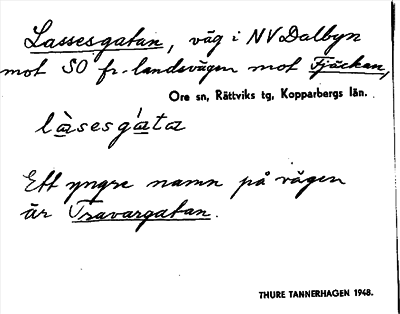 Lassesgatan, väg i NV Dalbyn
mot SO fr. landsvägen mot Fjäckan,
Ore sn, Rättviks tg, Kopparbergs län.
là̱sesgá̱ta
Ett yngre namn på vägen
är Travargatan.
THURE TANNERHAGEN 1948.